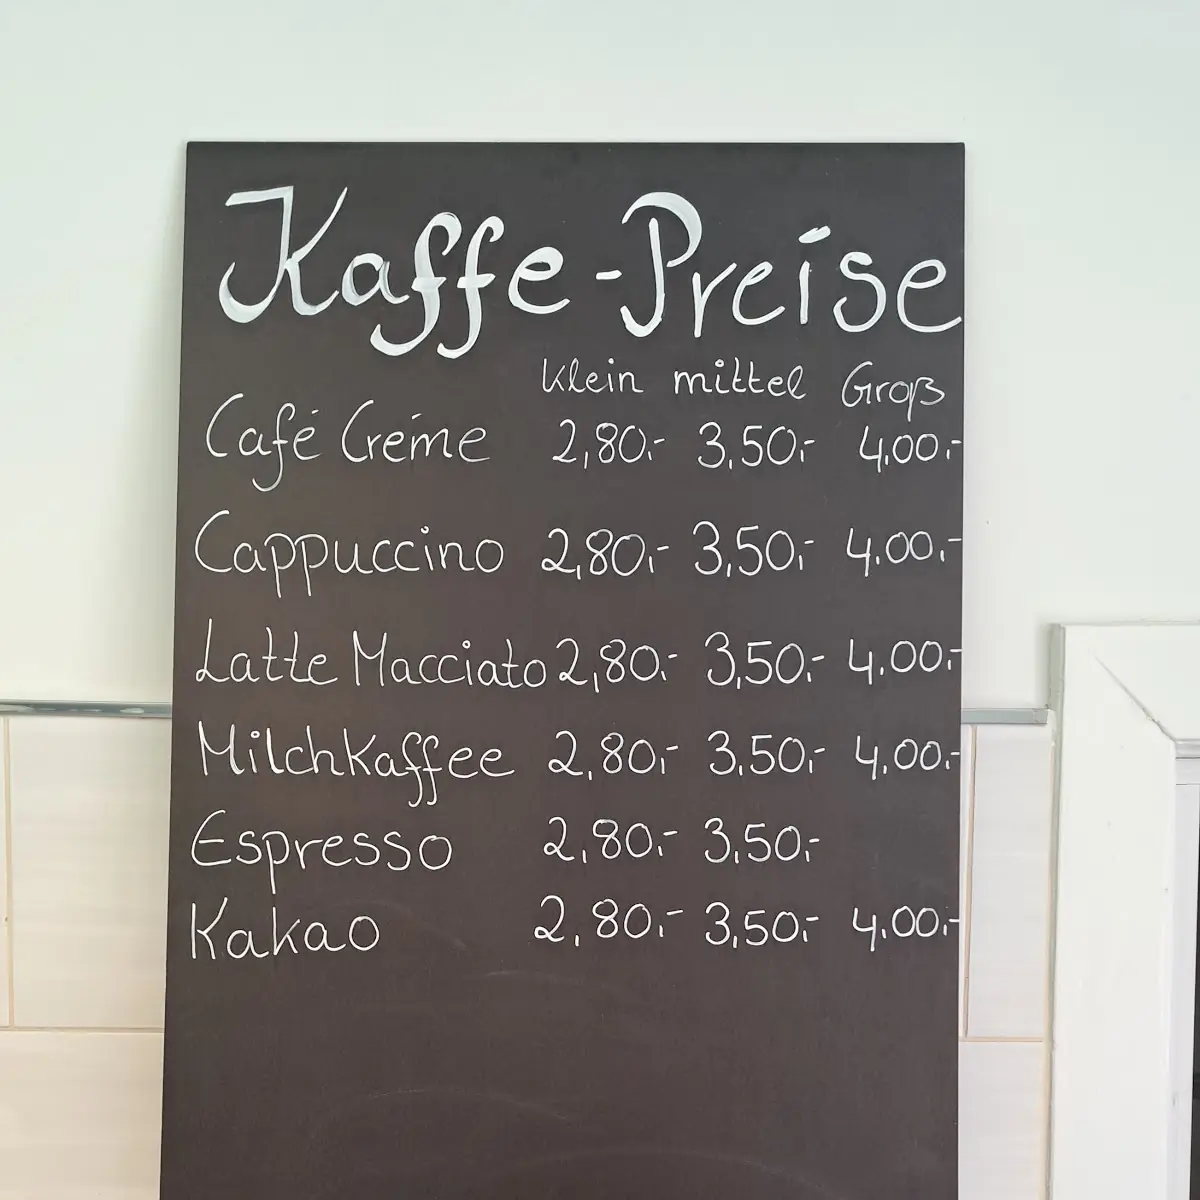 Kaffe-Preise
klein mittel Groß
Café Créme 2,80,- 3,50,- 4,00,-
Cappuccino 2,80,- 3,50,- 4,00,-
Latte Macciato 2,80,- 3,50,- 4,00,-
Milchkaffee 2,80,- 3,50,- 4,00,-
Espresso 2,80,- 3,50,-
Kakao 2,80,- 3,50,- 4,00,-